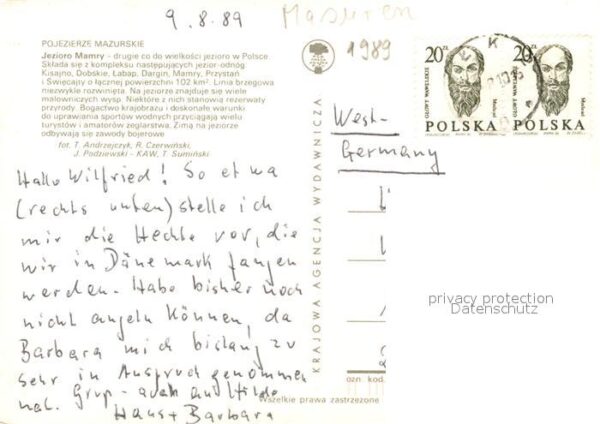 9.8.89
Masuren
1989
POJEZIERZE MAZURSKIE
Jezioro Mamry - drugie co do wielkości jezioro w Polsce
Składa się z kompleksu następujących jezior-odnóg:
Kisajno, Dobskie, Łabap, Dargin, Mamry, Przystań
i Święcajty o łącznej powierzchni 102 km². Linia brzegowa
niezwykle rozwinięta. Na jeziorze znajduje się wiele
malowniczych wysp. Niektóre z nich stanowią rezerwaty
przyrody. Bogactwo krajobrazu i doskonałe warunki
do uprawiania sportów wodnych przyciągają wielu
turystów i amatorów żeglarstwa. Zimą na jeziorze
odbywają się zawody bojerowe
fot. T. Andrzejczyk, R. Czerwiński,
J. Podziewski - KAW, T. Sumiński
Hallo Wilfried! So etwa
(rechts unten) stelle ich
mir die Hechte vor, die
wir in Dänemark fangen
werden. Habe bisher noch
nicht angeln können, da
Barbara mich bislang zu
sehr in Anspruch genommen
hat. Gruß - auch an Hilde
Hans + Barbara
KRAJOWA AGENCJA WYDAWNICZA
20 zł
GŁOWY WAWELSKIE
POLSKA
20 zł
GŁOWY WAWELSKIE
POLSKA
West-
Germany
privacy protection
Datenschutz
ozn. kod.
Wszelkie prawa zastrzeżone